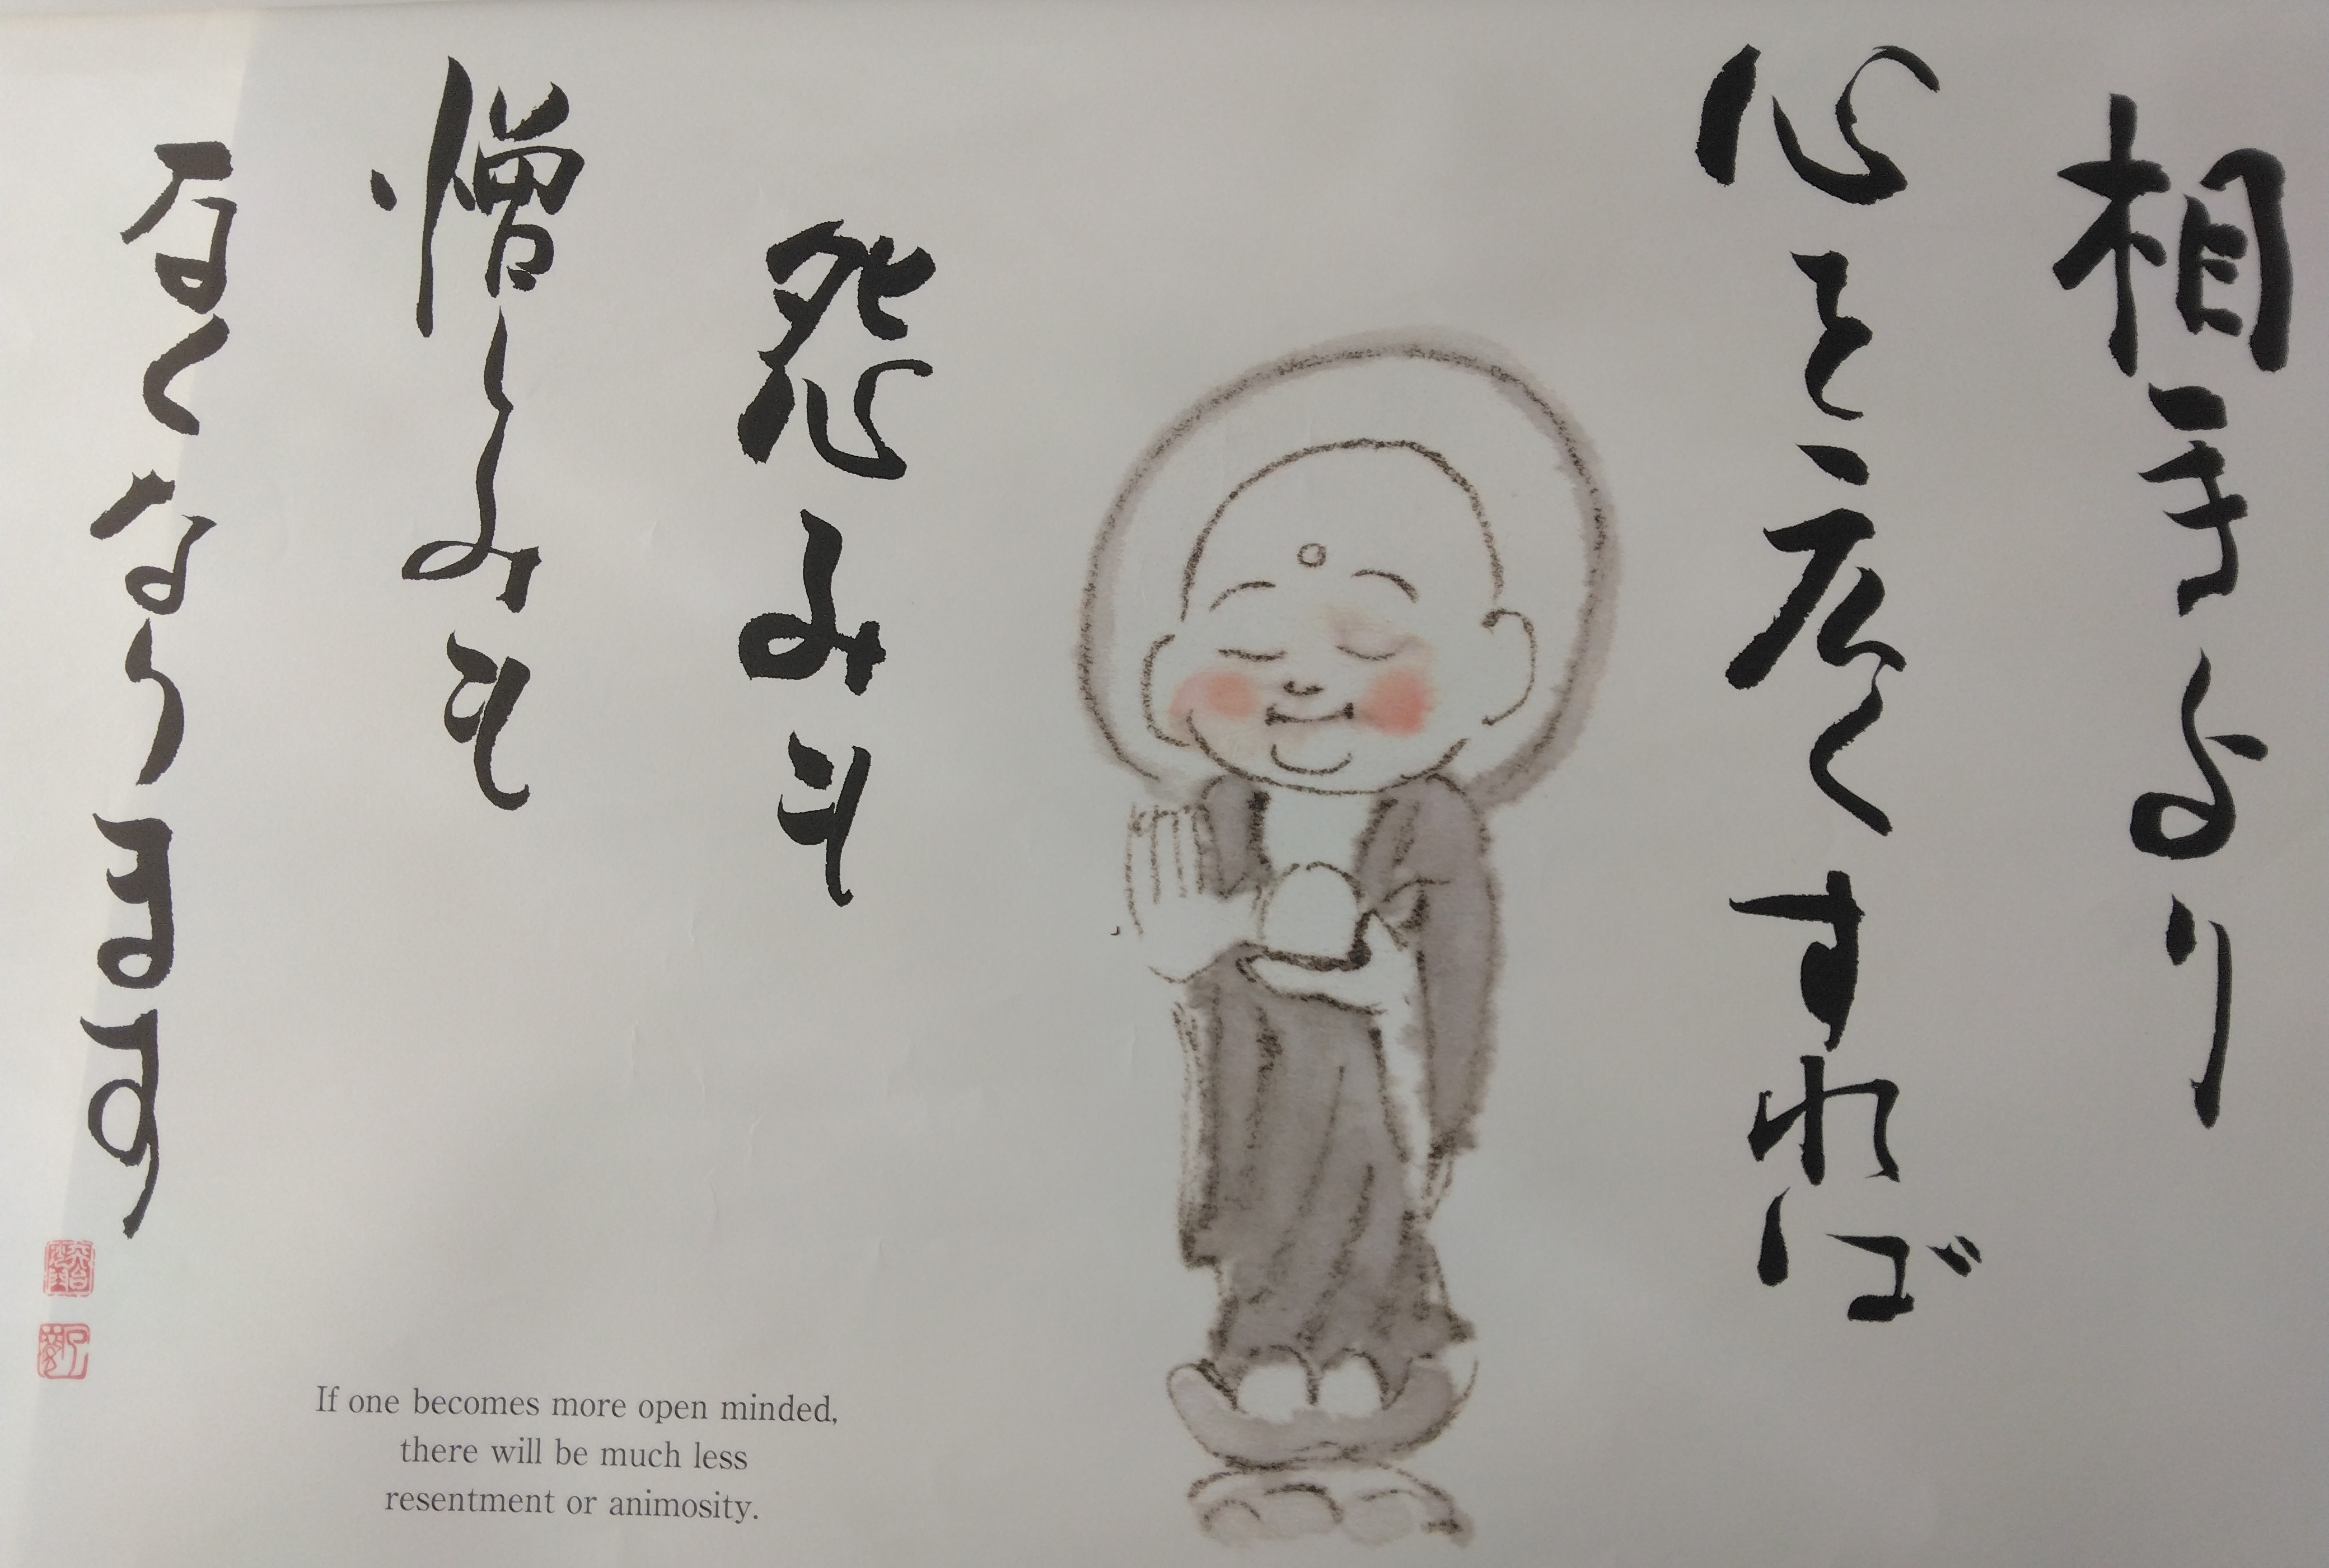 相手より
心を広くすれば
怨みも
憎しみも
なくなります
If one becomes more open minded,
there will be much less
resentment or animosity.